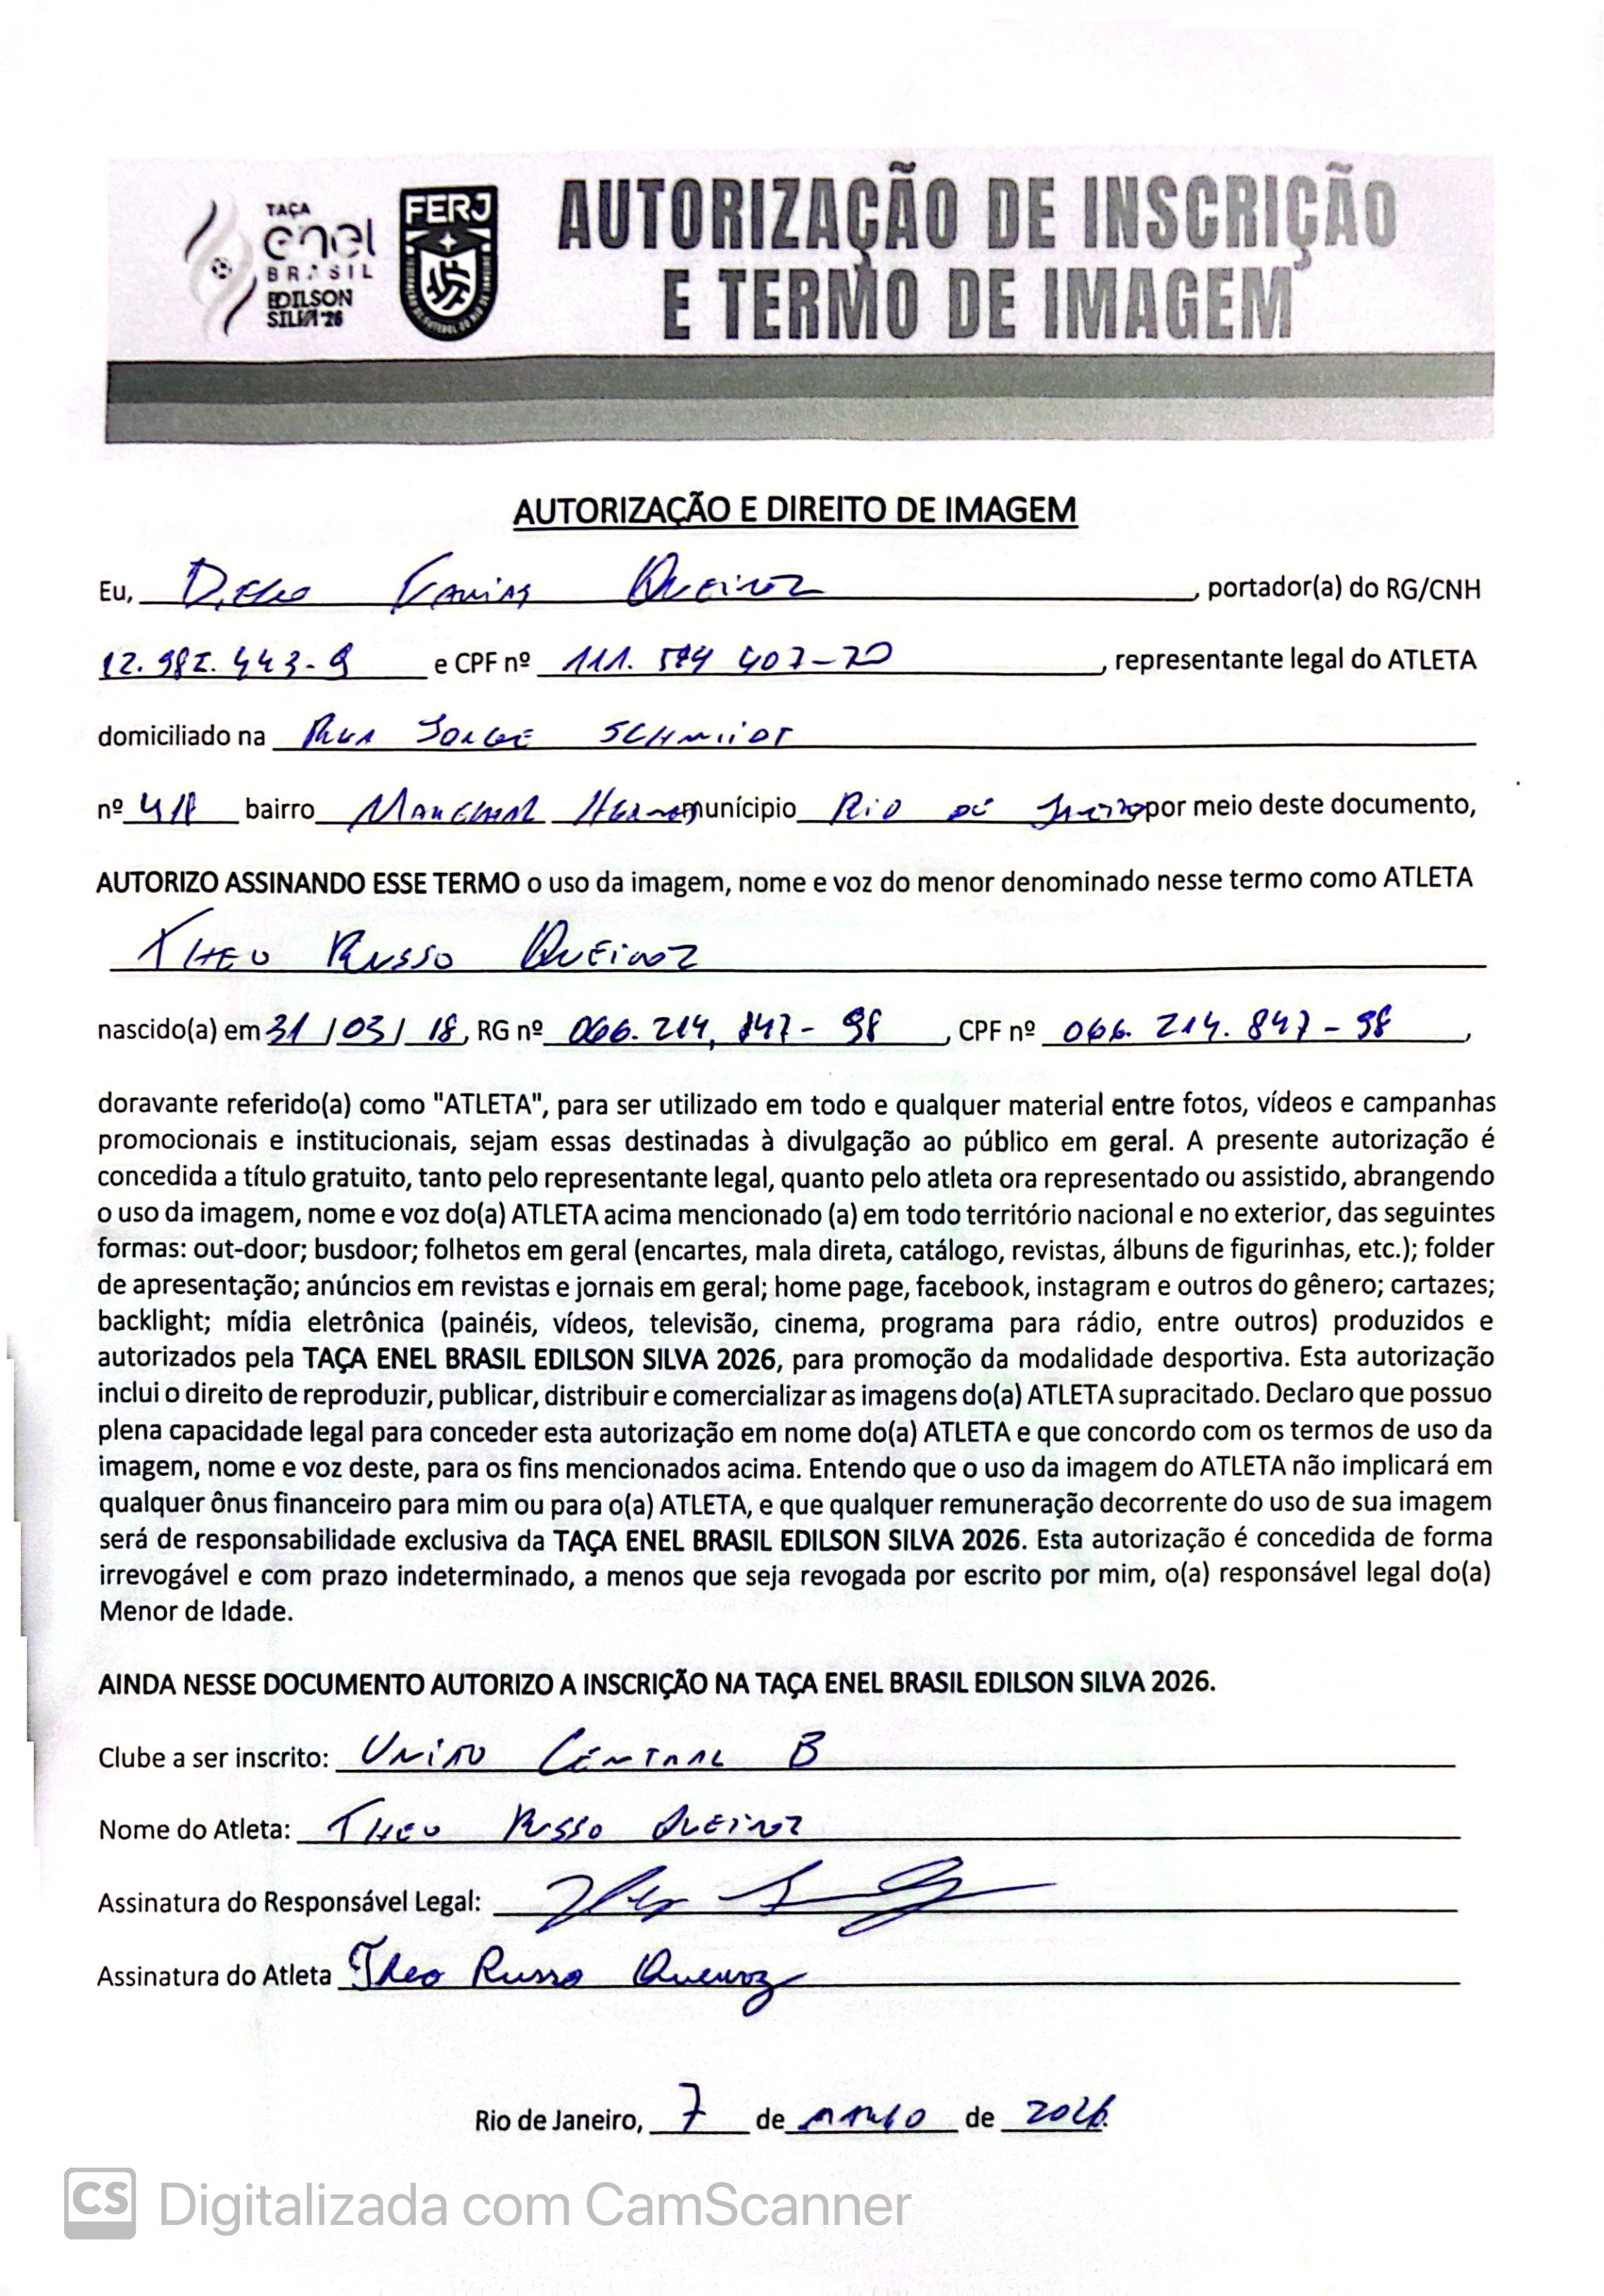 TAÇA
enel
BRASIL
EDILSON
SILVA '26
FERJ
AUTORIZAÇÃO DE INSCRIÇÃO
E TERMO DE IMAGEM
AUTORIZAÇÃO E DIREITO DE IMAGEM
Eu, Queiroz, portador(a) do RG/CNH
e CPF nº, representante legal do ATLETA
domiciliado na Rua Jorge Schmiidt
nº bairro Marechal município Rio de Janeiro por meio deste documento,
AUTORIZO ASSINANDO ESSE TERMO o uso da imagem, nome e voz do menor denominado nesse termo como ATLETA
Theo Russo Queiroz
nascido(a) em 31/03/18, RG nº 066.214.847-98, CPF nº 066.214.847-98,
doravante referido(a) como "ATLETA", para ser utilizado em todo e qualquer material entre fotos, vídeos e campanhas
promocionais e institucionais, sejam essas destinadas à divulgação ao público em geral. A presente autorização é
concedida a título gratuito, tanto pelo representante legal, quanto pelo atleta ora representado ou assistido, abrangendo
o uso da imagem, nome e voz do(a) ATLETA acima mencionado (a) em todo território nacional e no exterior, das seguintes
formas: out-door; busdoor; folhetos em geral (encartes, mala direta, catálogo, revistas, álbuns de figurinhas, etc.); folder
de apresentação; anúncios em revistas e jornais em geral; home page, facebook, instagram e outros do gênero; cartazes;
backlight; mídia eletrônica (painéis, vídeos, televisão, cinema, programa para rádio, entre outros) produzidos e
autorizados pela TAÇA ENEL BRASIL EDILSON SILVA 2026, para promoção da modalidade desportiva. Esta autorização
inclui o direito de reproduzir, publicar, distribuir e comercializar as imagens do(a) ATLETA supracitado. Declaro que possuo
plena capacidade legal para conceder esta autorização em nome do(a) ATLETA e que concordo com os termos de uso da
imagem, nome e voz deste, para os fins mencionados acima. Entendo que o uso da imagem do ATLETA não implicará em
qualquer ônus financeiro para mim ou para o(a) ATLETA, e que qualquer remuneração decorrente do uso de sua imagem
será de responsabilidade exclusiva da TAÇA ENEL BRASIL EDILSON SILVA 2026. Esta autorização é concedida de forma
irrevogável e com prazo indeterminado, a menos que seja revogada por escrito por mim, o(a) responsável legal do(a)
Menor de Idade.
AINDA NESSE DOCUMENTO AUTORIZO A INSCRIÇÃO NA TAÇA ENEL BRASIL EDILSON SILVA 2026.
Clube a ser inscrito: União Central B
Nome do Atleta: Theo Russo Queiroz
Assinatura do Responsável Legal:
Assinatura do Atleta Theo Russo Queiroz
Rio de Janeiro, 7 de de 2026.
CS Digitalizada com CamScanner